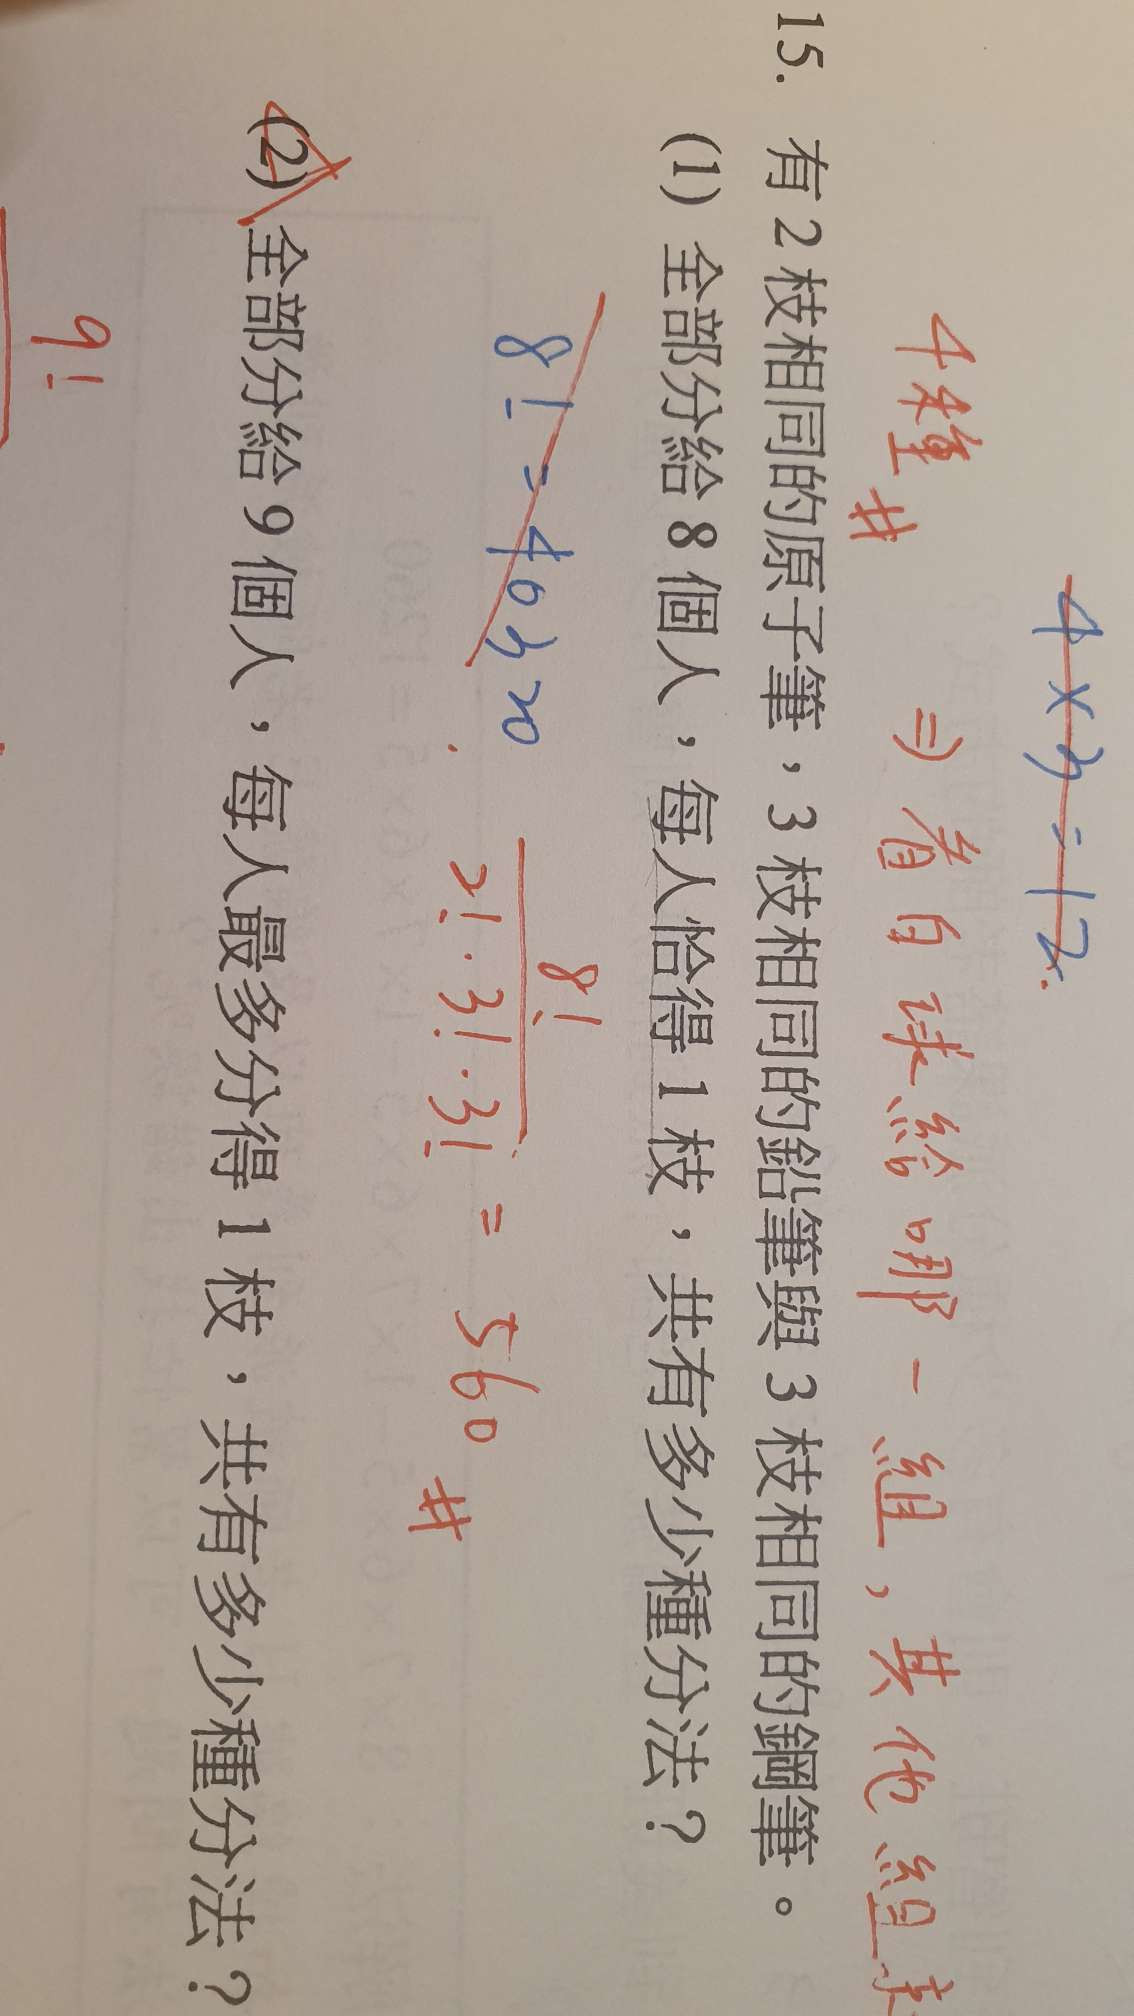 4×3=12
4種# ⇒看白球給哪一組,其他組
15. 有2枝相同的原子筆,3枝相同的鉛筆與3枝相同的鋼筆。
(1) 全部分給8個人,每人恰得1枝,共有多少種分法?
8!=40320
8!
2!·3!·3! = 560 #
(2) 全部分給9個人,每人最多分得1枝,共有多少種分法?
9!